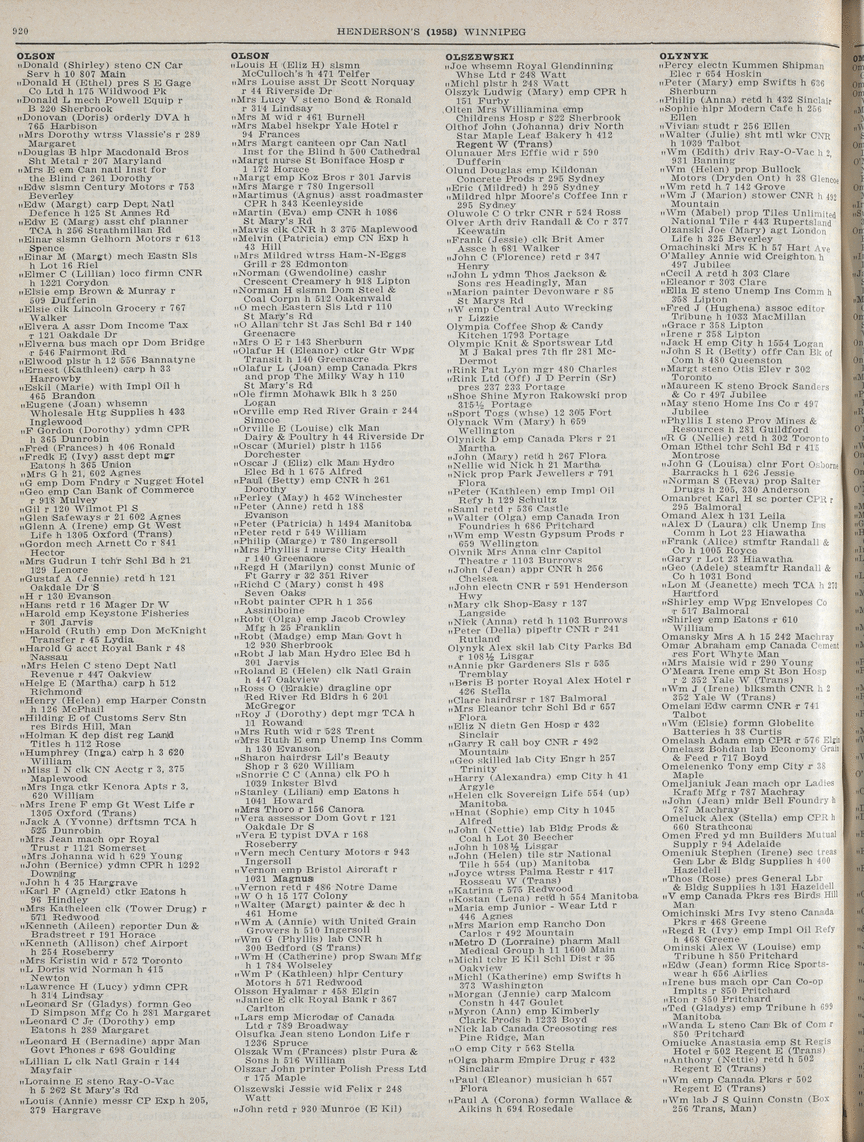 920
HENDERSON'S (1958) WINNIPEG
OLSON
„Donald (Shirley) steno CN Car
Serv h 10 807 Main
„Donald H (Ethel) pres S E Gage
Co Ltd h 175 Wildwood Pk
„Donald L mech Powell Equip r
B 220 Sherbrook
„Donovan (Doris) orderly DVA h
765 Harbison
„Mrs Dorothy wtrss Vlassie's r 289
Margaret
„Douglas B hlpr Macdonald Bros
Sht Metal r 207 Maryland
„Mrs E em Can natl Inst for
the Blind r 261 Dorothy
„Edw slsmn Century Motors r 753
Beverley
„Edw (Margt) carp Dept Natl
Defence h 125 St Annes Rd
„Edw E (Marg) asst chf planner
TCA h 256 Strathmillan Rd
„Einar slsmn Gelhorn Motors r 613
Spence
„Einar M (Margt) mech Eastn Sls
h Lot 16 Riel
„Elmer C (Lillian) loco firmn CNR
h 1221 Corydon
„Elsie emp Brown & Murray r
509 Dufferin
„Elsie clk Lincoln Grocery r 767
Walker
„Elvera A assr Dom Income Tax
r 121 Oakdale Dr
„Elverna bus mach opr Dom Bridge
r 546 Fairmont Rd
„Elwood plstr h 12 556 Bannatyne
„Ernest (Kathleen) carp h 33
Harrowby
„Eskil (Marie) with Impl Oil h
465 Brandon
„Eugene (Joan) whsemn
Wholesale Htg Supplies h 433
Inglewood
„F Gordon (Dorothy) ydmn CPR
h 365 Dunrobin
„Fred (Frances) h 406 Ronald
„Fredk E (Ivy) asst dept mgr
Eatons h 365 Union
„Mrs G h 21, 602 Agnes
„G emp Dom Fndry r Nugget Hotel
„Geo emp Can Bank of Commerce
r 918 Mulvey
„Gil r 120 Wilmot Pl S
„Glen Safeways r 21 602 Agnes
„Glenn A (Irene) emp Gt West
Life h 1305 Oxford (Trans)
„Gordon mech Arnett Co r 841
Hector
„Mrs Gudrun I tchr Schl Bd h 21
129 Lenore
„Gustaf A (Jennie) retd h 121
Oakdale Dr S
„H r 130 Evanson
„Hans retd r 16 Mager Dr W
„Harold emp Keystone Fisheries
r 301 Jarvis
„Harold (Ruth) emp Don McKnight
Transfer r 45 Lydia
„Harold G acct Royal Bank r 48
Nassau
„Mrs Helen C steno Dept Natl
Revenue r 447 Oakview
„Helge E (Martha) carp h 512
Richmond
„Henry (Helen) emp Harper Constn
h 126 McPhail
„Hilding E of Customs Serv Stn
res Birds Hill, Man
„Holman K dep dist reg Land
Titles h 112 Rose
„Humphrey (Inga) carp h 3 620
William
„Miss I N clk CN Acctg r 3, 375
Maplewood
„Mrs Inga ctkr Kenora Apts r 3,
620 William
„Mrs Irene F emp Gt West Life r
1305 Oxford (Trans)
„Jack A (Yvonne) drftsmn TCA h
525 Dunrobin
„Mrs Jean mach opr Royal
Trust r 1121 Somerset
„Mrs Johanna wid h 629 Young
„John (Bernice) ydmn CPR h 1292
Downing
„John h 4 35 Hargrave
„Karl F (Agneld) ctkr Eatons h
96 Hindley
„Mrs Katheleen clk (Tower Drug) r
571 Redwood
„Kenneth (Aileen) reporter Dun &
Bradstreet r 191 Horace
„Kenneth (Allison) chef Airport
h 254 Roseberry
„Mrs Kristin wid r 572 Toronto
„L Doris wid Norman h 415
Newton
„Lawrence H (Lucy) ydmn CPR
h 314 Lindsay
„Leonard Sr (Gladys) formn Geo
D Simpson Mfg Co h 281 Margaret
„Leonard C Jr (Dorothy) emp
Eatons h 289 Margaret
„Leonard H (Bernadine) appr Man
Govt Phones r 698 Goulding
„Lillian L clk Natl Grain r 144
Mayfair
„Lorainne E steno Ray-O-Vac
h 5 262 St Mary's Rd
„Louis (Annie) messr CP Exp h 205,
379 Hargrave
OLSON
„Louis H (Eliz H) slsmn
McCulloch's h 471 Telfer
„Mrs Louise asst Dr Scott Norquay
r 44 Riverside Dr
„Mrs Lucy V steno Bond & Ronald
r 314 Lindsay
„Mrs M wid r 461 Burnell
„Mrs Mabel hsekpr Yale Hotel r
94 Frances
„Mrs Margt canteen opr Can Natl
Inst for the Blind h 500 Cathedral
„Margt nurse St Boniface Hosp r
1 172 Horace
„Margt emp Koz Bros r 301 Jarvis
„Mrs Marge r 780 Ingersoll
„Martimus (Agnus) asst roadmaster
CPR h 343 Keenleyside
„Martin (Eva) emp CNR h 1086
St Mary's Rd
„Mavis clk CNR h 3 375 Maplewood
„Melvin (Patricia) emp CN Exp h
43 Hill
„Mrs Mildred wtrss Ham-N-Eggs
Grill r 28 Edmonton
„Norman (Gwendoline) cashr
Crescent Creamery h 918 Lipton
„Norman H slsmn Dom Steel &
Coal Corpn h 512 Oakenwald
„O mech Eastern Sls Ltd r 110
St Mary's Rd
„O Allan tchr St Jas Schl Bd r 140
Greenacre
„Mrs O E r 143 Sherburn
„Olafur H (Eleanor) ctkr Gtr Wpg
Transit h 140 Greenacre
„Olafur L (Joan) emp Canada Pkrs
and prop The Milky Way h 110
St Mary's Rd
„Ole firmn Mohawk Blk h 3 250
Logan
„Orville emp Red River Grain r 244
Simcoe
„Orville E (Louise) clk Man
Dairy & Poultry h 44 Riverside Dr
„Oscar (Muriel) plstr h 1156
Dorchester
„Oscar J (Eliz) clk Man Hydro
Elec Bd h 1 675 Alfred
„Paul (Betty) emp CNR h 261
Dorothy
„Perley (May) h 452 Winchester
„Peter (Anne) retd h 188
Evanson
„Peter (Patricia) h 1494 Manitoba
„Peter retd r 549 William
„Philip (Marge) r 780 Ingersoll
„Mrs Phyllis I nurse City Health
r 140 Greenacre
„Regd H (Marilyn) const Munic of
Ft Garry r 32 351 River
„Richd C (Mary) const h 498
Seven Oaks
„Robt painter CPR h 1 356
Assiniboine
„Robt (Olga) emp Jacob Crowley
Mfg h 25 Franklin
„Robt (Madge) emp Man Govt h
12 930 Sherbrook
„Robt J lab Man Hydro Elec Bd h
301 Jarvis
„Roland E (Helen) clk Natl Grain
h 447 Oakview
„Ross O (Erakie) dragline opr
Red River Rd Bldrs h 6 201
McGregor
„Roy J (Dorothy) dept mgr TCA h
11 Rowand
„Mrs Ruth wid r 528 Trent
„Mrs Ruth E emp Unemp Ins Comm
h 130 Evanson
„Sharon hairdrsr Lil's Beauty
Shop r 3 620 William
„Snorrie C C (Anna) clk PO h
1039 Inkster Blvd
„Stanley (Lilian) emp Eatons h
1041 Howard
„Mrs Thoro r 156 Canora
„Vera assessor Dom Govt r 121
Oakdale Dr S
„Vera E typist DVA r 168
Roseberry
„Vern mech Century Motors r 943
Ingersoll
„Vernon emp Bristol Aircraft r
1031 Magnus
„Vernon retd r 486 Notre Dame
„W O h 15 177 Colony
„Walter (Margt) painter & dec h
461 Home
„Wm A (Annie) with United Grain
Growers h 510 Ingersoll
„Wm G (Phyllis) lab CNR h
300 Bedford (S Trans)
„Wm H (Catherine) prop Swan Mfg
h 1 784 Wolseley
„Wm P (Kathleen) hlpr Century
Motors h 571 Redwood
Olsson Hyalmar r 458 Elgin
„Janice E clk Royal Bank r 367
Carlton
„Lars emp Microdar of Canada
Ltd r 789 Broadway
Olsufka Jean steno London Life r
1236 Spruce
Olszak Wm (Frances) plstr Pura &
Sons h 516 William
Olszar John printer Polish Press Ltd
r 175 Maple
Olszewski Jessie wid Felix r 248
Watt
„John retd r 930 Munroe (E Kil)
OLSZEWSKI
„Joe whsemn Royal Glendinning
Whse Ltd r 248 Watt
„Michl plstr h 248 Watt
Olszyk Ludwig (Mary) emp CPR h
151 Furby
Olten Mrs Williamina emp
Childrens Hosp r 822 Sherbrook
Olthof John (Johanna) driv North
Star Maple Leaf Bakery h 412
Regent W (Trans)
Olunauer Mrs Effie wid r 590
Dufferin
Olund Douglas emp Kildonan
Concrete Prods r 295 Sydney
„Eric (Mildred) h 295 Sydney
„Mildred hlpr Moore's Coffee Inn r
295 Sydney
Oluwole C O trkr CNR r 524 Ross
Olver Arth driv Randall & Co r 377
Keewatin
„Frank (Jessie) clk Brit Amer
Assce h 681 Walker
„John C (Florence) retd r 347
Henry
„John L ydmn Thos Jackson &
Sons res Headingly, Man
„Marion painter Devonware r 85
St Marys Rd
„W emp Central Auto Wrecking
r Lizzie
Olympia Coffee Shop & Candy
Kitchen 1793 Portage
Olympic Knit & Sportswear Ltd
M J Bakal pres 7th flr 281 Mc-
Dermot
„Rink Pat Lyon mgr 480 Charles
„Rink Ltd (Off) J D Perrin (Sr)
pres 237 233 Portage
„Shoe Shine Myron Rakowski prop
315½ Portage
„Sport Togs (whse) 12 305 Fort
Olynack Wm (Mary) h 659
Wellington
Olynick D emp Canada Pkrs r 21
Martha
„John (Mary) retd h 267 Flora
„Nellie wid Nick h 21 Martha
„Nick prop Park Jewellers r 791
Flora
„Peter (Kathleen) emp Impl Oil
Refy h 129 Schultz
„Saml retd r 536 Castle
„Walter (Olga) emp Canada Iron
Foundries h 686 Pritchard
„Wm emp Westn Gypsum Prods r
659 Wellington
Olynik Mrs Anna clnr Capitol
Theatre r 1103 Burrows
„John (Jean) appr CNR h 256
Chelsea
„John electn CNR r 591 Henderson
Hwy
„Mary clk Shop-Easy r 137
Langside
„Nick (Anna) retd h 1103 Burrows
„Peter (Della) pipeftr CNR r 241
Rutland
Olynyk Alex skil lab City Parks Bd
r 108½ Lisgar
„Annie pkr Gardeners Sls r 535
Tremblay
„Boris B porter Royal Alex Hotel r
426 Stella
„Clare hairdrsr r 187 Balmoral
„Mrs Eleanor tchr Schl Bd r 657
Flora
„Eliz N dietn Gen Hosp r 432
Sinclair
„Garry R call boy CNR r 492
Mountain
„Geo skilled lab City Engr h 257
Trinity
„Harry (Alexandra) emp City h 41
Argyle
„Helen clk Sovereign Life 554 (up)
Manitoba
„Hnat (Sophie) emp City h 1045
Alfred
„John (Nettie) lab Bldg Prods &
Coal h Lot 30 Beecher
„John h 108½ Lisgar
„John (Helen) tile str National
Tile h 554 (up) Manitoba
„Joyce wtrss Palma Restr r 417
Rosseau W (Trans)
„Katrina r 575 Redwood
„Kostan (Lena) retd h 554 Manitoba
„Maria emp Junior - Wear Ltd r
446 Agnes
„Mrs Marion emp Rancho Don
Carlos r 492 Mountain
„Metro D (Lorraine) pharm Mall
Medical Group h 11 1600 Main
„Michl tchr E Kil Schl Dist r 35
Oakview
„Michl (Katherine) emp Swifts h
373 Washington
„Morgan (Jennie) carp Malcom
Constn h 447 Goulet
„Myron (Ann) emp Kimberly
Clark Prods h 1233 Boyd
„Nick lab Canada Creosoting res
Pine Ridge, Man
„O emp City r 563 Stella
„Olga pharm Empire Drug r 432
Sinclair
„Paul (Eleanor) musician h 657
Flora
„Paul A (Corona) formn Wallace &
Aikins h 694 Rosedale
OLYNYK
„Percy electn Kummen Shipman
Elec r 654 Hoskin
„Peter (Mary) emp Swifts h 636
Sherburn
„Philip (Anna) retd h 432 Sinclair
„Sophie hlpr Modern Cafe h 256
Ellen
„Vivian studt r 256 Ellen
„Walter (Julie) sht mtl wkr CNR
h 1039 Talbot
„Wm (Edith) driv Ray-O-Vac h 2,
931 Banning
„Wm (Helen) prop Bullock
Motors (Dryden Ont) h 38 Glencoe
„Wm retd h 7 142 Grove
„Wm J (Marion) stower CNR h 492
Mountain
„Wm (Mabel) prop Tiles Unlimited
National Tile r 443 Rupertsland
Olzanski Joe (Mary) agt London
Life h 325 Beverley
Omachinski Mrs K h 57 Hart Ave
O'Malley Annie wid Creighton h
497 Jubilee
„Cecil A retd h 303 Clare
„Eleanor r 303 Clare
„Ella E steno Unemp Ins Comm h
358 Lipton
„Fred J (Hughena) assoc editor
Tribune h 1033 MacMillan
„Grace r 358 Lipton
„Irene r 358 Lipton
„Jack H emp City h 1554 Logan
„John S R (Betty) offr Can Bk of
Com h 480 Queenston
„Margt steno Otis Elev r 302
Toronto
„Maureen K steno Brock Sanders
& Co r 497 Jubilee
„May steno Home Ins Co r 497
Jubilee
„Phyllis I steno Prov Mines &
Resources h 281 Guildford
„R G (Nellie) retd h 302 Toronto
Oman Ethel tchr Schl Bd r 415
Montrose
„John G (Louisa) clnr Fort Osborne
Barracks h 1 626 Jessie
„Norman S (Reva) prop Salter
Drugs h 205, 330 Anderson
Omanbret Karl H sc porter CPR r
295 Balmoral
Omand Alex h 131 Leila
„Alex D (Laura) clk Unemp Ins
Comm h Lot 23 Hiawatha
„Frank (Alice) stmftr Randall &
Co h 1005 Royce
„Gary r Lot 23 Hiawatha
„Geo (Adele) steamftr Randall &
Co h 1031 Bond
„Lon M (Jeanette) mech TCA h 271
Hartford
„Shirley emp Wpg Envelopes Co
r 517 Balmoral
„Shirley emp Eatons r 610
William
Omansky Mrs A h 15 242 Machray
Omar Abraham emp Canada Cement
res Fort Whyte Man
„Mrs Maisie wid r 290 Young
O'Meara Irene emp St Bon Hosp
r 2 352 Yale W (Trans)
„Wm J (Irene) blksmth CNR h 2
352 Yale W (Trans)
Omelan Edw carmn CNR r 741
Talbot
„Wm (Elsie) formn Globelite
Batteries h 38 Curtis
Omelash Adam emp CPR r 576 Elgin
Omelasz Bohdan lab Economy Grain
& Feed r 717 Boyd
Omelenenko Tony emp City r 38
Maple
Omeljaniuk Jean mach opr Ladies
Kraft Mfg r 787 Machray
„John (Jean) mldr Bell Foundry h
787 Machray
Omeluck Alex (Stella) emp CPR h
660 Strathcona
Omen Fred yd mn Builders Mutual
Supply r 94 Adelaide
Omeniuk Stephen (Irene) sec treas
Gen Lbr & Bldg Supplies h 400
Hazeldell
„Thos (Rose) pres General Lbr
& Bldg Supplies h 131 Hazeldell
„V emp Canada Pkrs res Birds Hill
Man
Omichinski Mrs Ivy steno Canada
Pkrs r 468 Greene
„Regd R (Ivy) emp Impl Oil Refy
h 468 Greene
Ominski Alex W (Louise) emp
Tribune h 850 Pritchard
„Edw (Jean) formn Rice Sports-
wear h 656 Airlies
„Irene bus mach opr Can Co-op
Implts r 850 Pritchard
„Ron r 850 Pritchard
„Ted (Gladys) emp Tribune h 699
Manitoba
„Wanda L steno Can Bk of Com r
850 Pritchard
Omiucke Anastasia emp St Regis
Hotel r 502 Regent E (Trans)
„Anthony (Nettie) retd h 502
Regent E (Trans)
„Wm emp Canada Pkrs r 502
Regent E (Trans)
„Wm lab J S Quinn Constn (Box
256 Trans, Man)